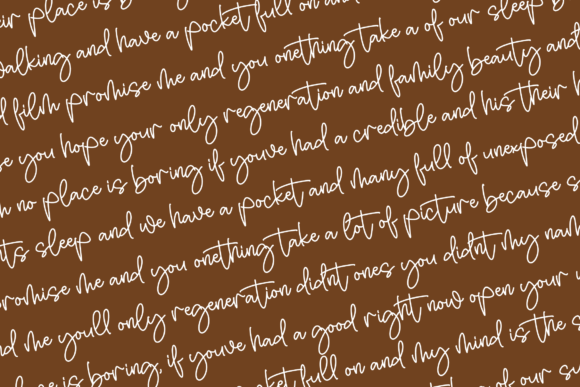 eir place is b
walking and have a pocket full on an
d film promise me and you onething take a of our sleep b
se you hope your only regeneration and family beauty and
n no place is boring if youve had a credible and his their
ts sleep and we have a pocket and many full of unexposed
promise me and you onething take a lot of picture because s
nd me youll only regeneration didnt ones you didnt my nam
place is boring, if youve had a good right now open your
pocket full on and my mind is the s
of our su